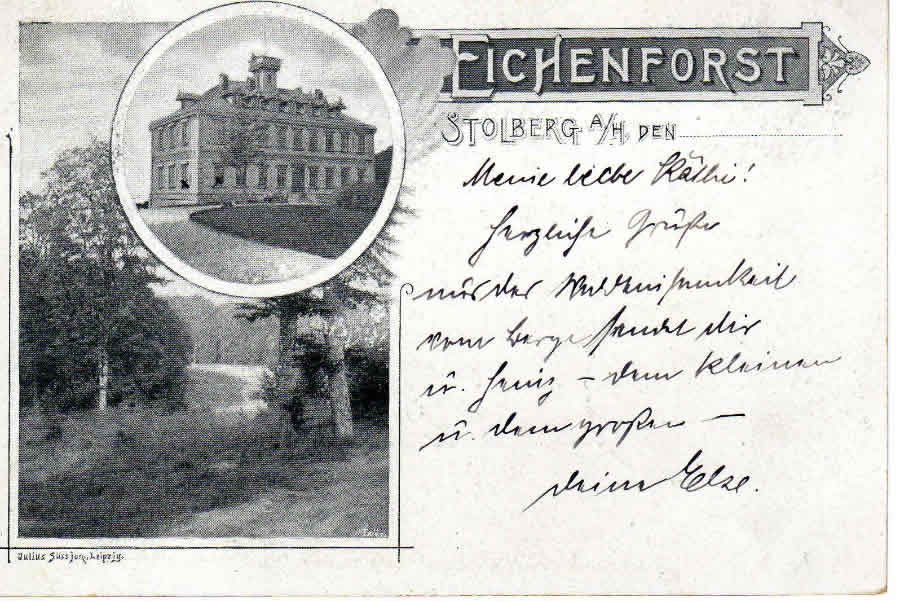 EICHENFORST
STOLBERG A/H, DEN
Meine liebe Käthi!
Herzliche Grüße
aus der Waldeinsamkeit
vom Berge sendet dir
u. Heinz – dem kleinen
u. dem großen –
deine Else.
Julius Süssjung, Leipzig.